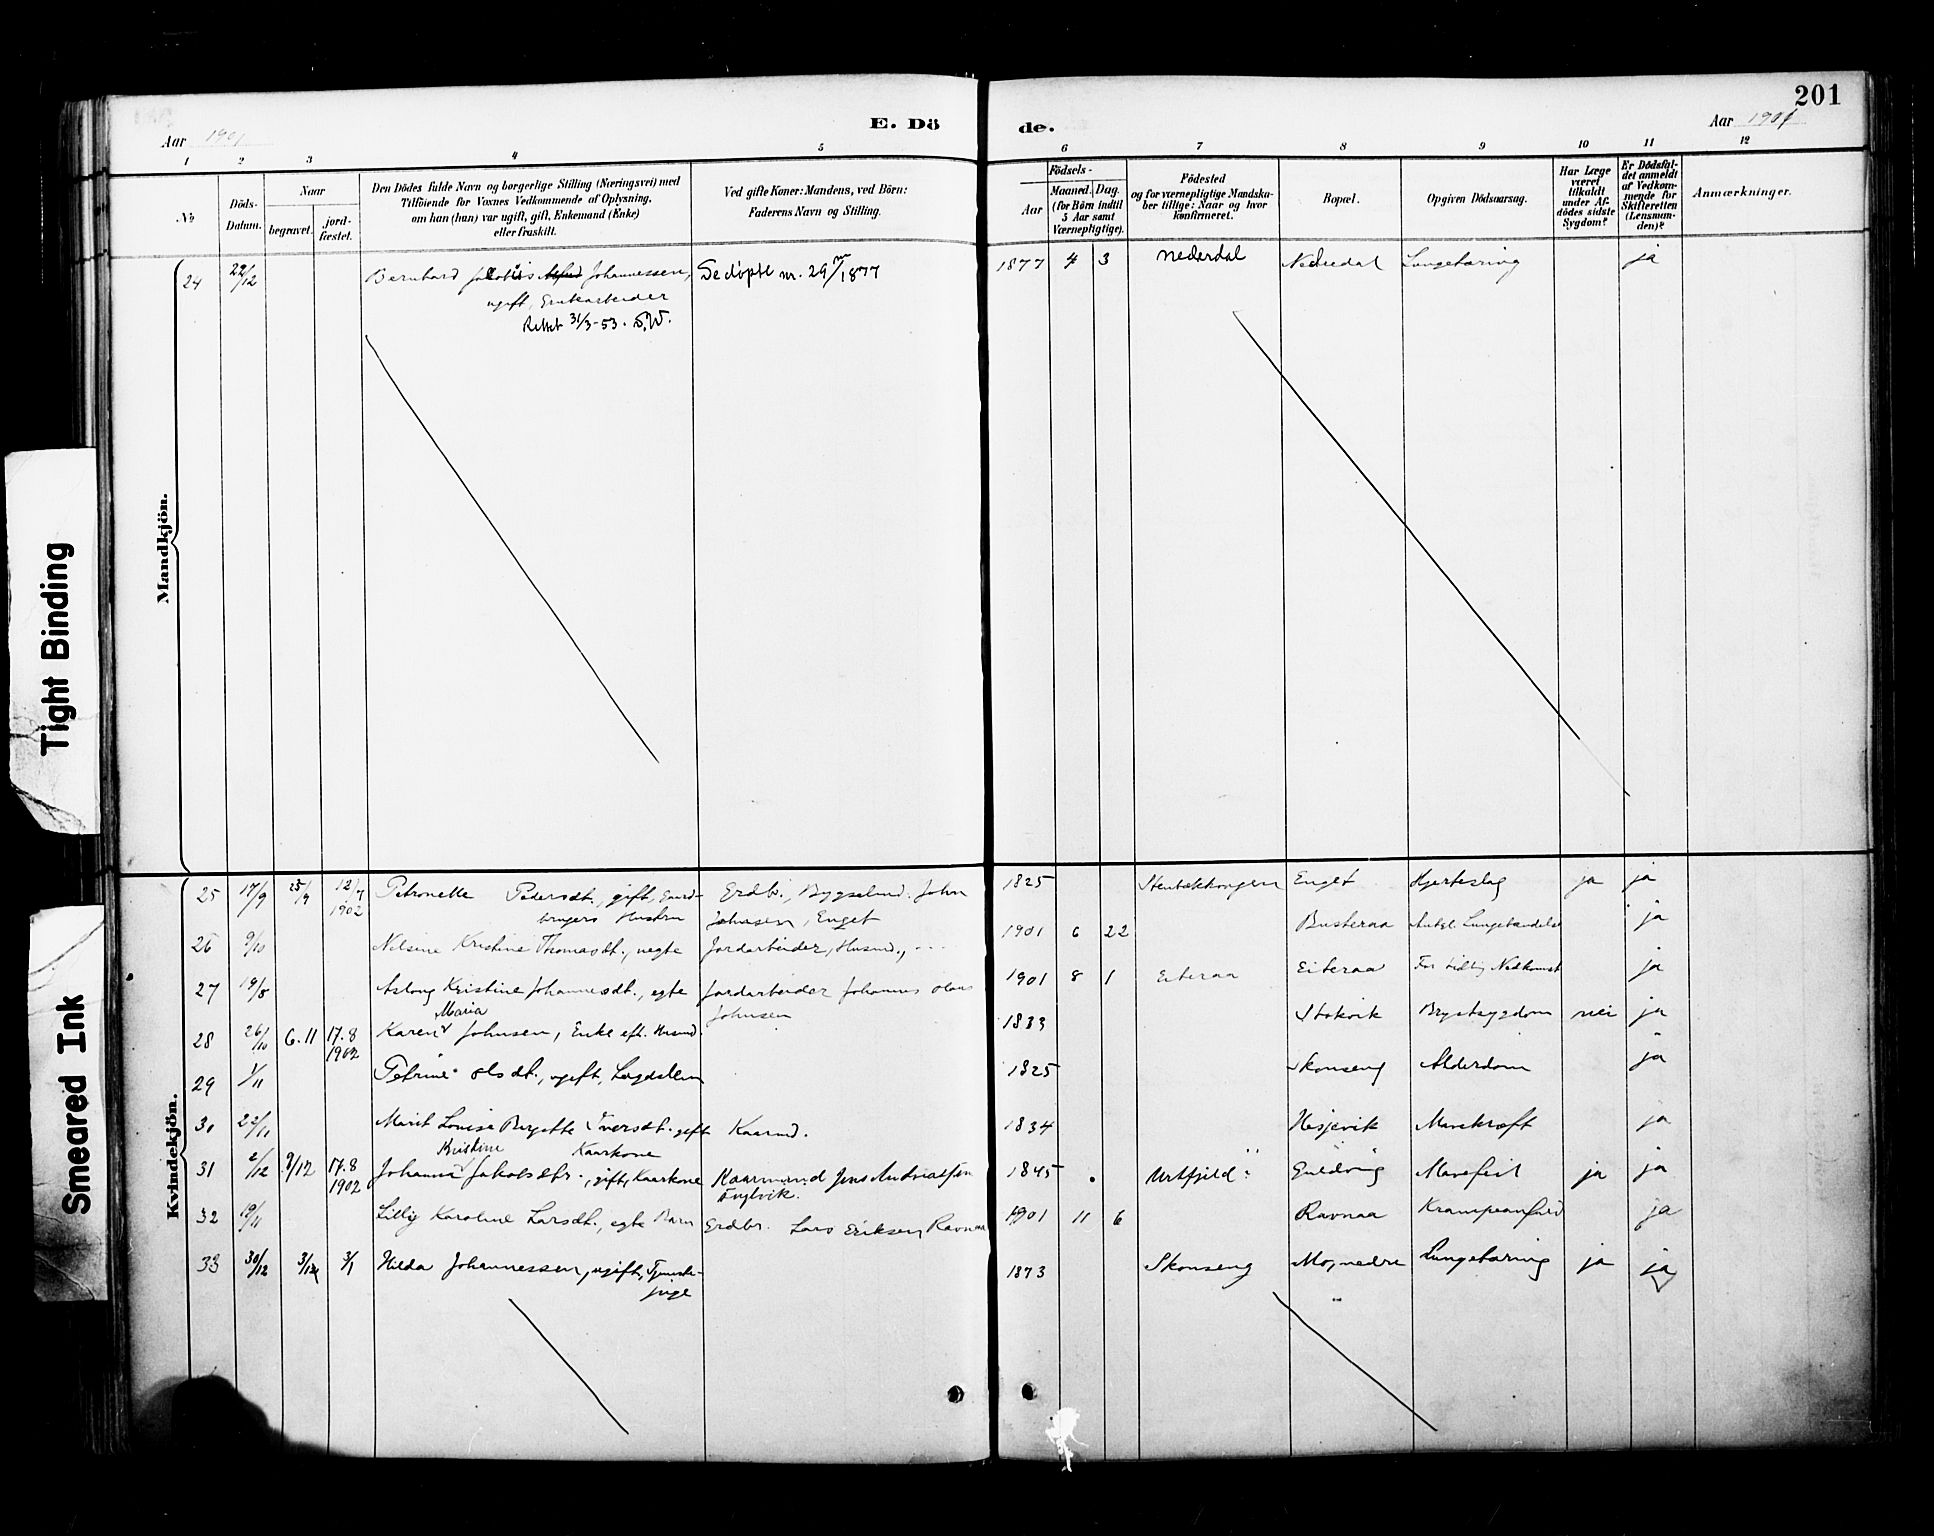 201
E. Döde.
Aar 1901
Aar 1901
1 2 3 4 5 6 7 8 9 10 11 12
No
Döds-Datum.
Naar
begravet.
jord-fæstet.
Den Dödes fulde Navn og borgerlige Stilling (Næringsvei) med
Tilföiende for Voxnes Vedkommende af Oplysning,
om han (hun) var ugift, gift, Enkemand (Enke)
eller fraskilt.
Ved gifte Koner: Mandens, ved Börn:
Faderens Navn og Stilling.
Födsels-
Aar
Maaned. Dag.
(for Börn indtil
5 Aar samt
Værnepligtige).
Födested
og for værnepligtige Mandska-
ber tillige: Naar og hvor
konfirmeret.
Bopæl.
Opgiven Dödsaarsag.
Har Læge
været
tilkaldt
under Af-
dödes sidste
Sygdom?
Er Dödsfal-
det anmeldt
af Vedkom-
mende for
Skifteretten
(Lensman-
den)?
Anmærkninger.
Mandkjön.
24 22/12 Bernhard Jakobus Alfred Johannessen, Se døpte nr. 29/1877 1877 4 3 Nederdal Nederdal Lungetæring ja
ugift, Grubearbeider
Rettet 31/3-53. S.W.
Kvindekjön.
25 17/9 12/7 1902 Petronelle Pedersdt., gift, Gaard-
brugers Hustru Grdbr., Bygselmd. John
Johnsen, Enget 1825 Enget Hjerteslag ja ja
26 9/10 Nelsine Kristine Thomasdt., uegte Jordarbeider, Husmd., 1901 6 22 Busteraa Antgl. Lungebetændelse ja
27 19/8 Aslaug Kristine Johannesdt., egte Jordarbeider Johannes Olaus
Johnsen 1901 8 1 Eiteraa Eiteraa For tidlig Nedkomst ja
28 26/10 6.11 17.8 1902 Karen Maria Johnsen, Enke eft. Husmd. 1833 Stokvik Brystsygdom nei ja
29 1/11 Petrine Olsdt., ugift, Lægdslem 1825 Skonseng Alderdom ja
30 22/11 Marit Lovise Bergitte Iversdt. gift
Kaarkone Kaarmd. 1834 Hesjevik Mavekræft ja
31 2/12 9/12 17.8 1902 Johanna Kristine Jakobsdtr., gift, Kaarkone Kaarmand Jens Andreassen 1845 Urtfjeld Mavefeil ja ja
32 19/11 Lilly Karoline Larsdt., egte Barn Grdbr. Lars Eriksen Ravnaa 1901 11 6 Ravnaa Krampeanfald ja
33 30/12 3/1 Hilda Johannessen, ugift, Tjeneste-
pige 1873 Skonseng Mo, nedre Lungetæring ja ja
Tight Binding
Smeared Ink